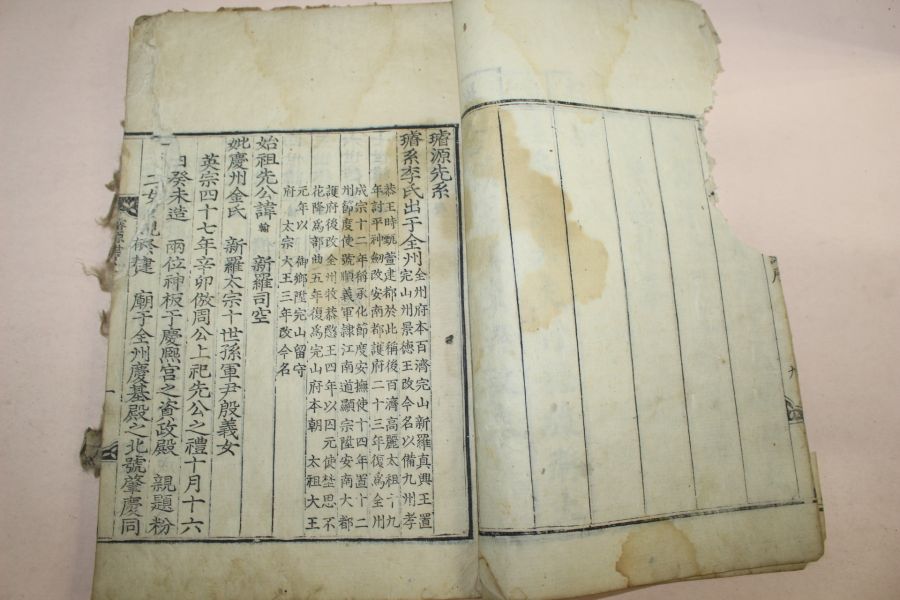 璿源先系
璿系李氏出于全州
全州府本百濟完山新羅真興王置
完山州景德王改今名以備九州孝
恭王時甄萱建都於此稱後百濟高麗太祖十九
年討平神劒改安南都護府二十三年復爲全州
成宗十二年稱承化節度安撫使十四年置十二
州節度使號順義軍隷江南道顯宗陞安南大都
護府後改全州牧恭愍王四年以囚元使埜思不
花降爲部曲五年復爲完山府本朝 太祖大王
元年以 御鄉陞完山留守
府 太宗大王三年改今名
始祖先公諱翰 新羅司空
妣慶州金氏 新羅太宗十世孫軍尹殷義女
英宗四十七年辛卯倣周公上祀先公之禮十月十六
日癸未造 兩位神板于慶熙宮之資政殿 親題粉
廟于全州慶基殿之北號肇慶同
一